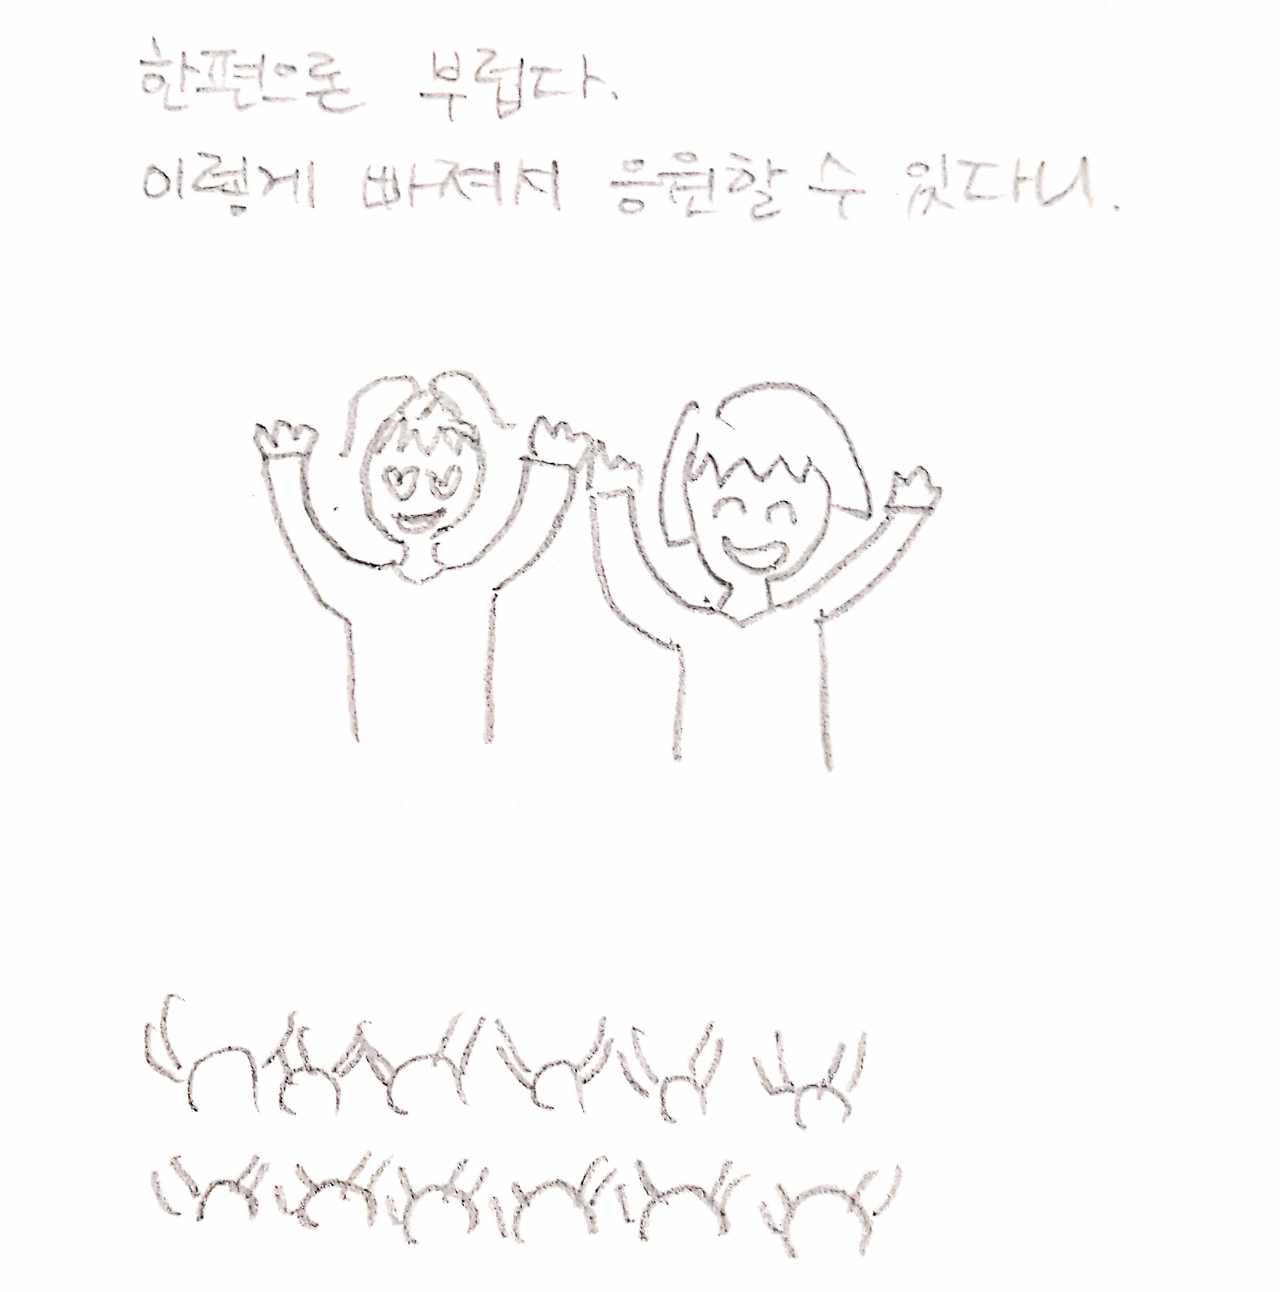 한편으론 부럽다.
이렇게 빠져서 응원할 수 있다니.